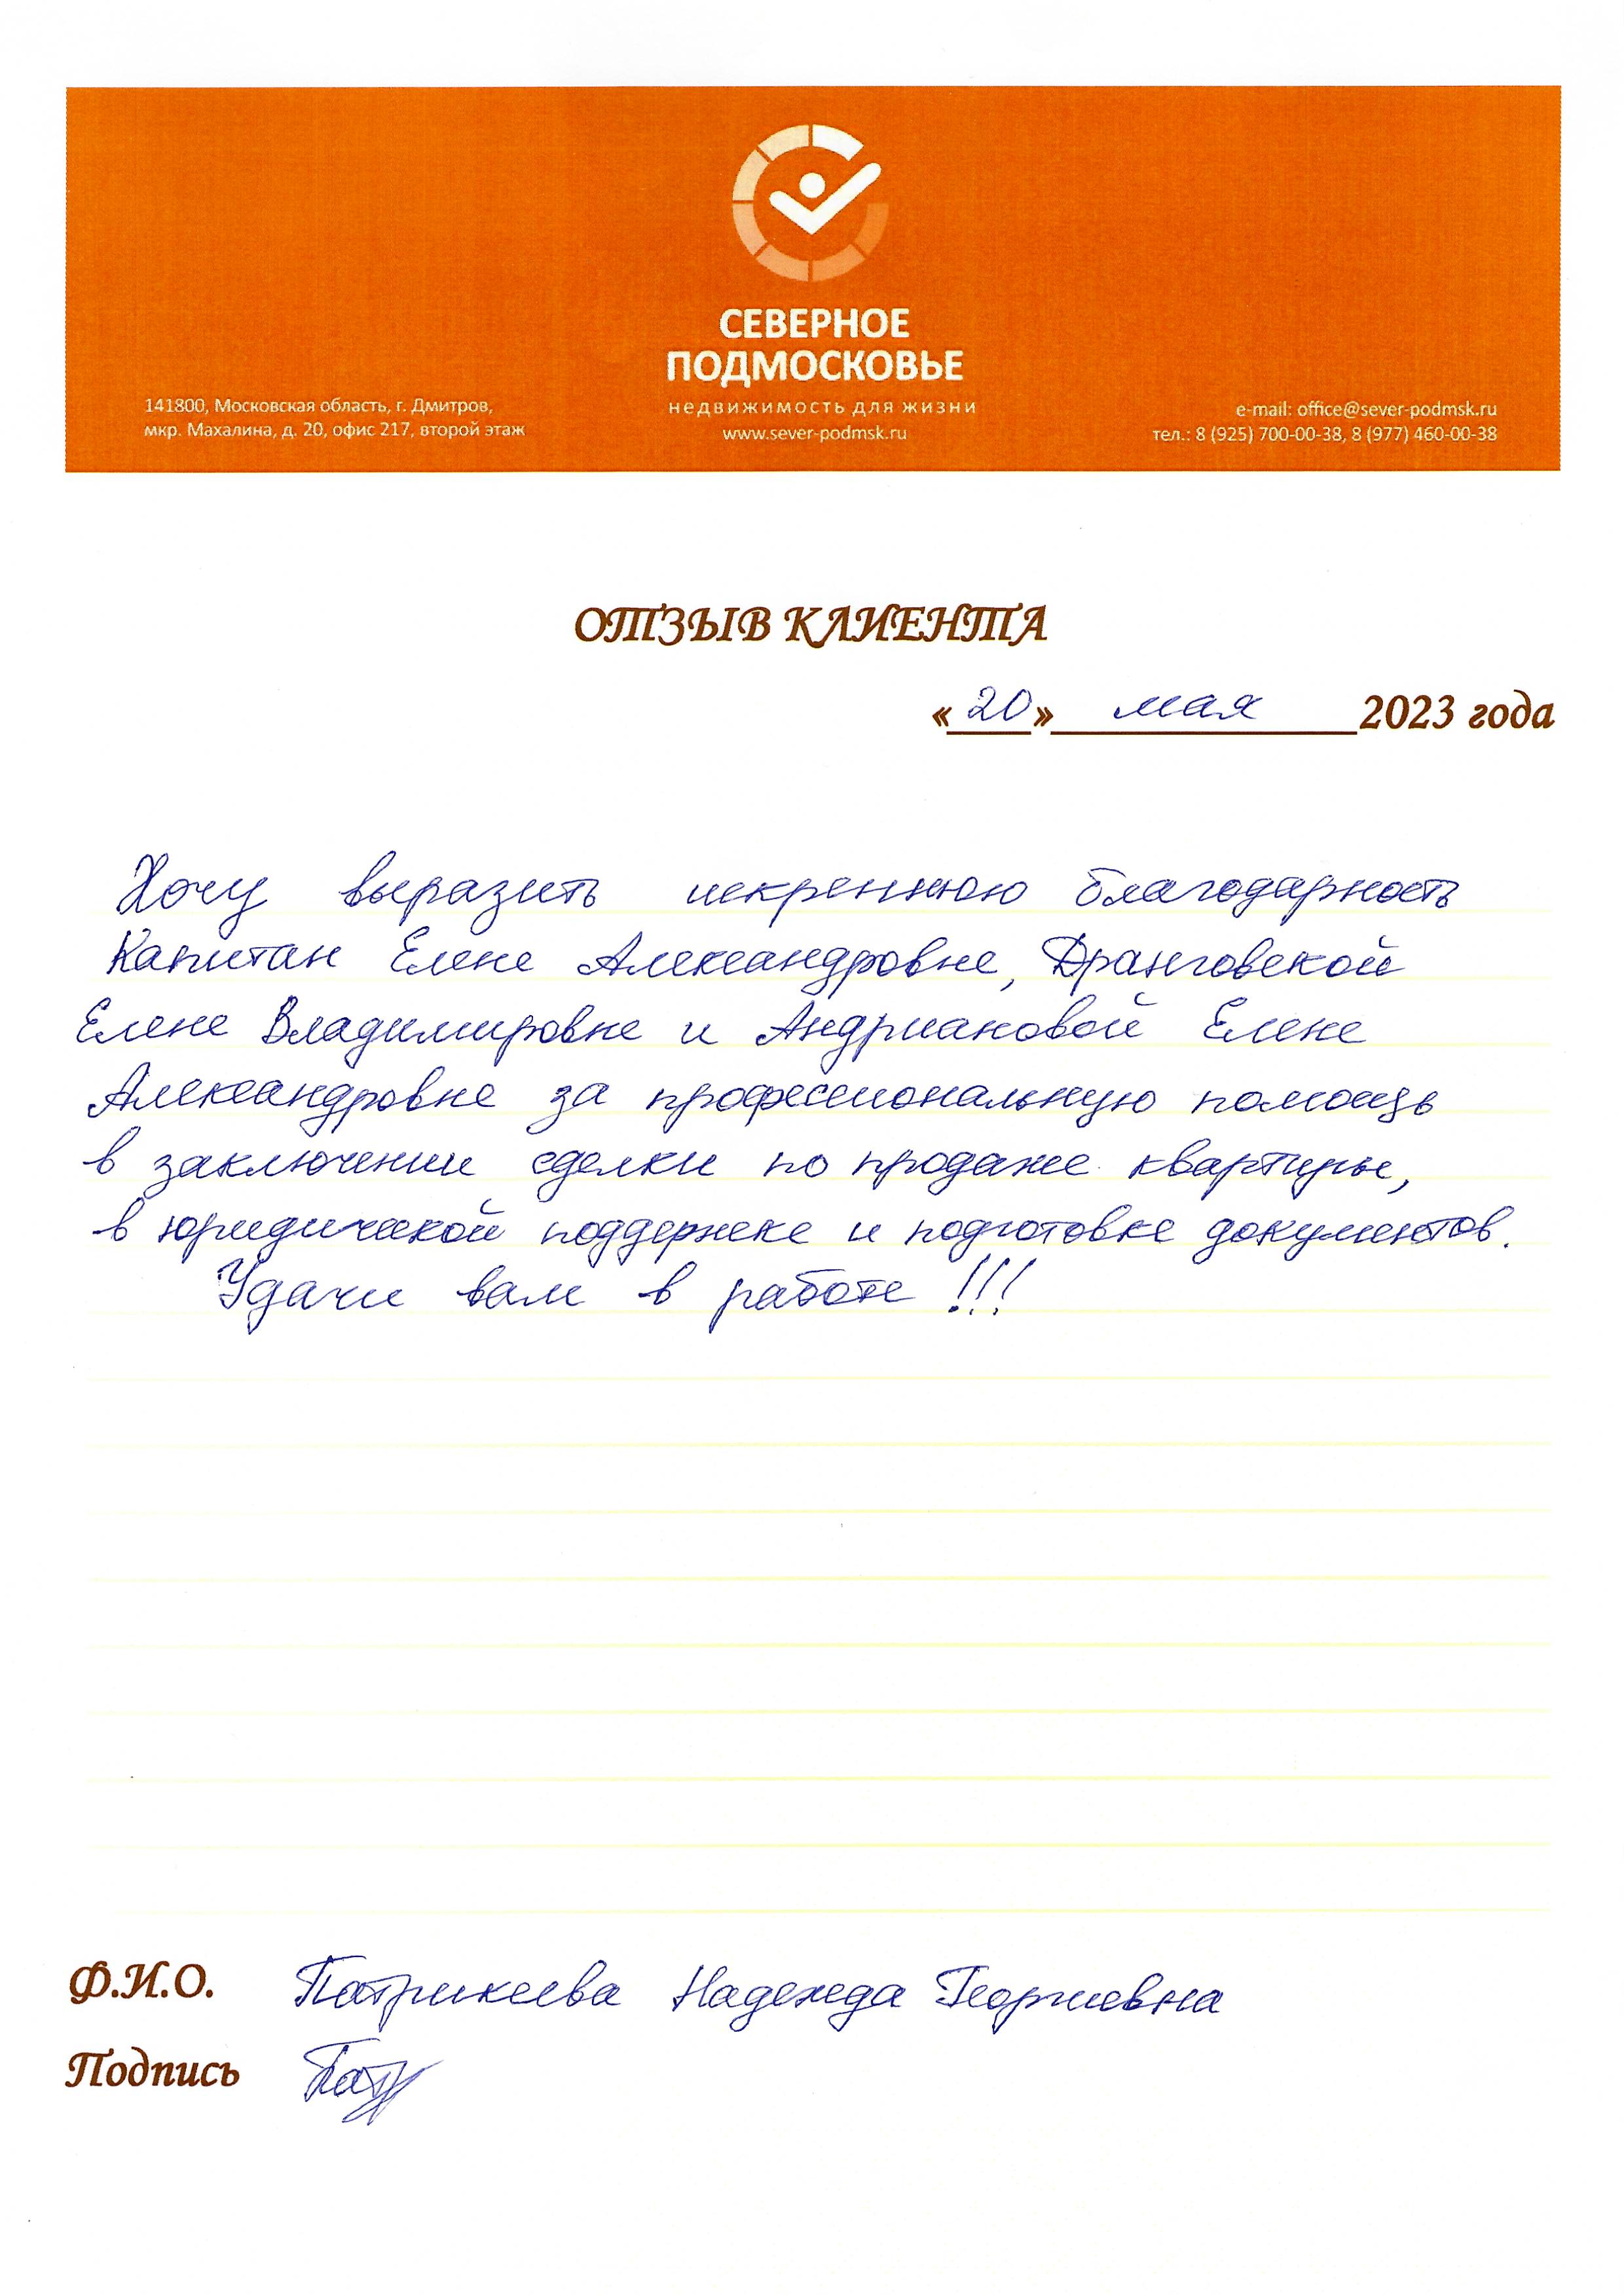 СЕВЕРНОЕ
ПОДМОСКОВЬЕ
недвижимость для жизни
www.sever-podmsk.ru
141800, Московская область, г. Дмитров,
мкр. Махалина, д. 20, офис 217, второй этаж
e-mail: office@sever-podmsk.ru
тел.: 8 (925) 700-00-38, 8 (977) 460-00-38
ОТЗЫВ КЛИЕНТА
«20» мая 2023 года
Хочу выразить искреннюю благодарность
Капитан Елене Александровне, Дранговской
Елене Владимировне и Андриановой Елене
Александровне за профессиональную помощь
в заключении сделки по продаже квартиры,
в юридической поддержке и подготовке документов.
Удачи вам в работе!!!
Ф.И.О. Патрикеева Надежда Георгиевна
Подпись Пат